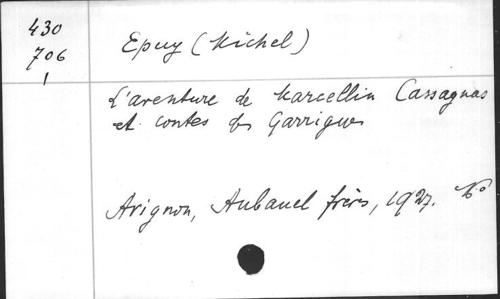 430
706
1
Epuy (Michel)
L'aventure de Marcellin Cassagnas
et contes des Garrigues
Avignon, Aubanel frères, 1927. 16°